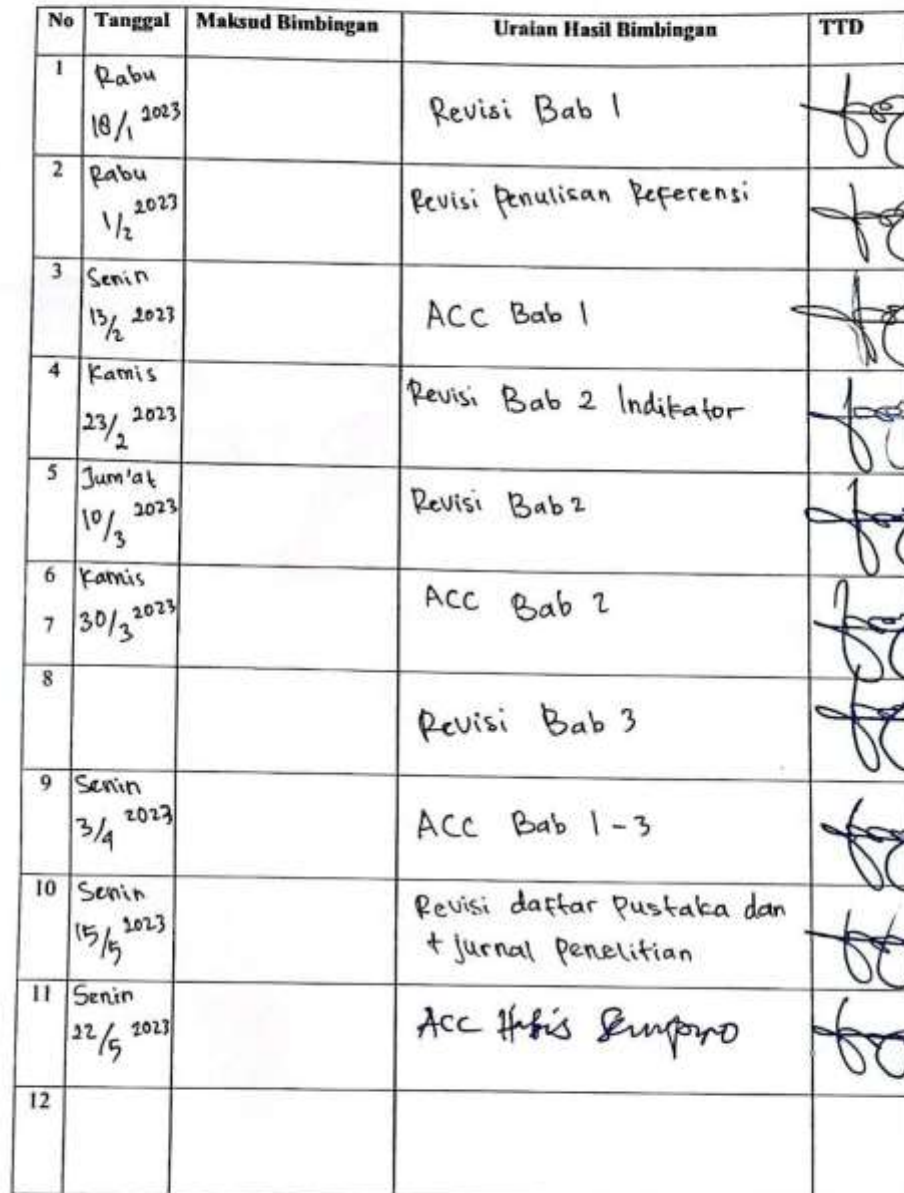 No Tanggal Maksud Bimbingan Uraian Hasil Bimbingan TTD
1 Rabu
18/1 2023 Revisi Bab 1
2 Rabu
1/2 2023 Revisi Penulisan Referensi
3 Senin
13/2 2023 ACC Bab 1
4 Kamis
23/2 2023 Revisi Bab 2 Indikator
5 Jum'at
10/3 2023 Revisi Bab 2
6 Kamis
7 30/3 2023 ACC Bab 2
8
Revisi Bab 3
9 Senin
3/4 2023 ACC Bab 1-3
10 Senin
15/5 2023 Revisi daftar Pustaka dan
+ jurnal Penelitian
11 Senin
22/5 2023 ACC
12